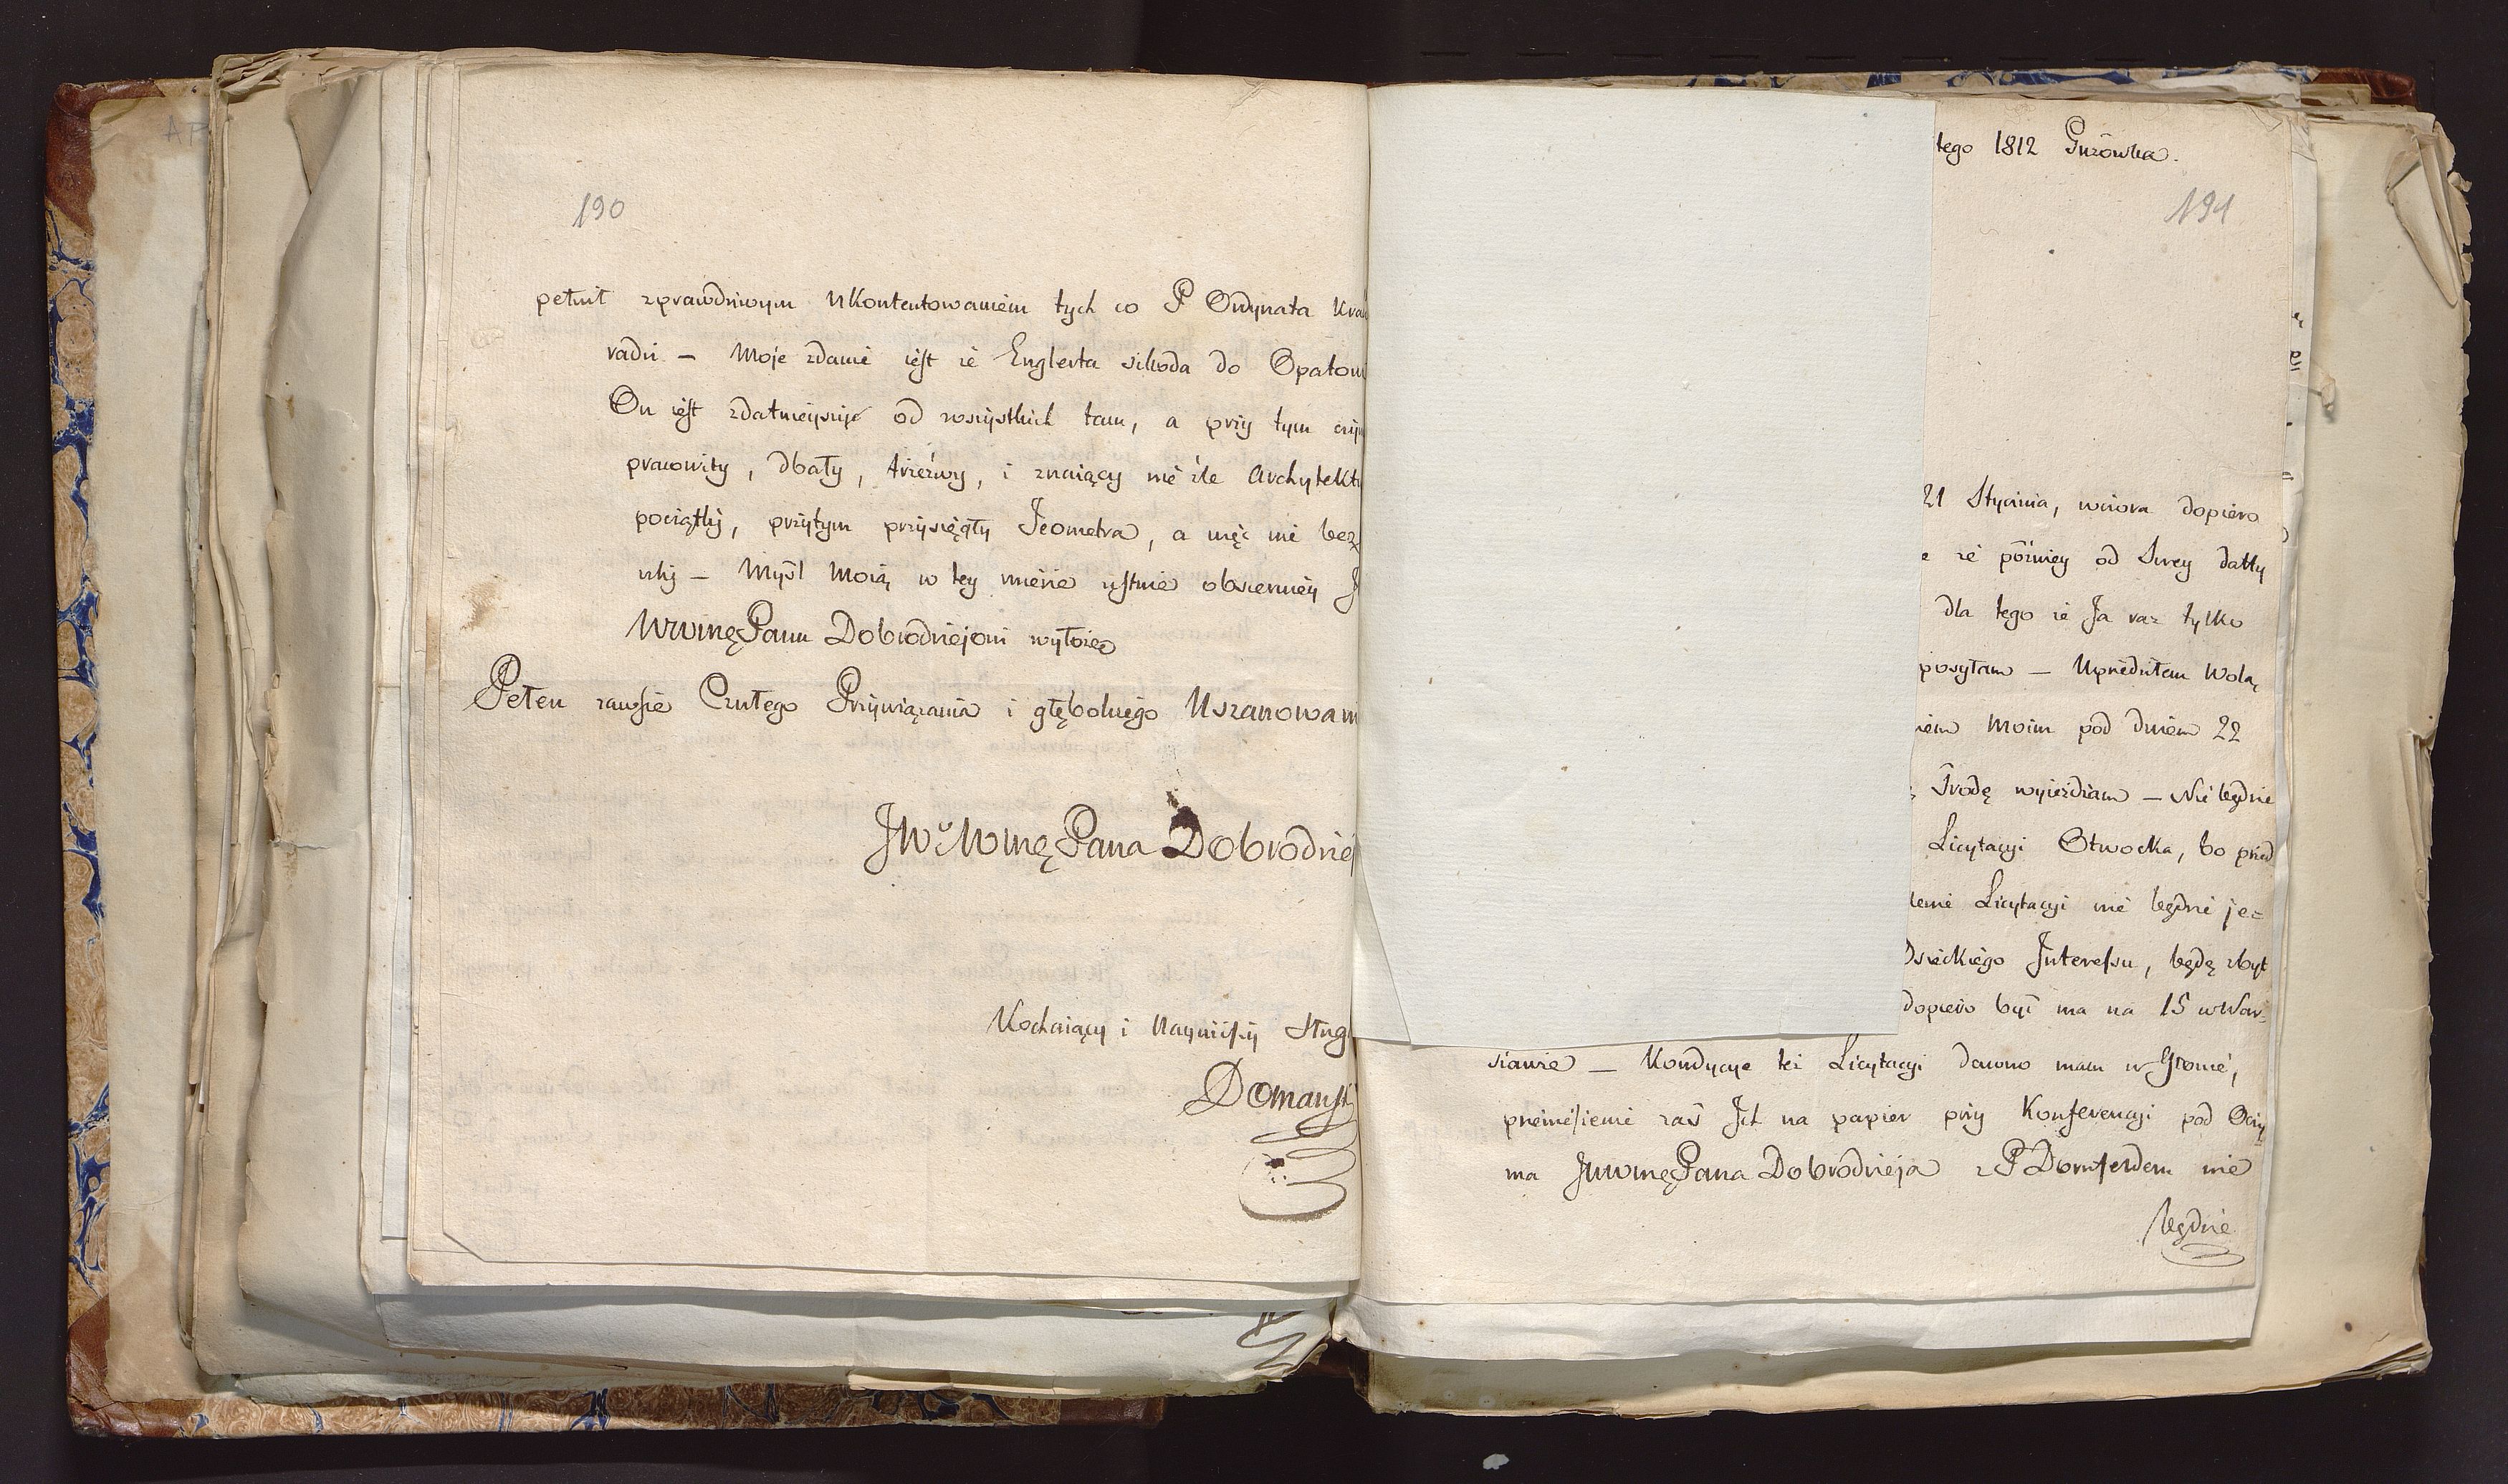 190
pełnił zprawdziwym Ukontentowaniem tych co P Ordynata
radzi — Moje zdanie iest że Englerta szkoda do
On iest zdatnieyszy od wszystkich tam, a przy tym
pracowity, dbały, trzeźwy, i znaiący nie źle
poczciwy, przytym przysięgły Jeometra, a więc nie
— Myśl Moią w tey mierze ustnie obszerniey
WWMę Panu Dobrodziejowi wyłożę
Pełen zawsze Czułego Przywiązania i głębokiego
JWo WMę Pana
Kochaiący i Nayniższy
tego 1812 Gurówka.
191
21 Stycznia, wczora dopiero
że późniey od Swey datty
dla tego że Ja raz tylko
posyłam — Uprzedziłem Wolą
Moim pod dniem 22
Srodę wyieżdżam — Nie będzie
Licytacyi Otwocka, bo przed
Licytacyi nie będzie je=
Interessu, będę zbyt
dopiero być ma na 15 wWar=
szawie — Kondycye też Licytacyi dawno mam w Głowie,
przeniesienie zaś Ich na papier przy Konferencyi pod Oczy=
ma JWWMę Pana Dobrodzieja z P Dornfeldem nie
będzie